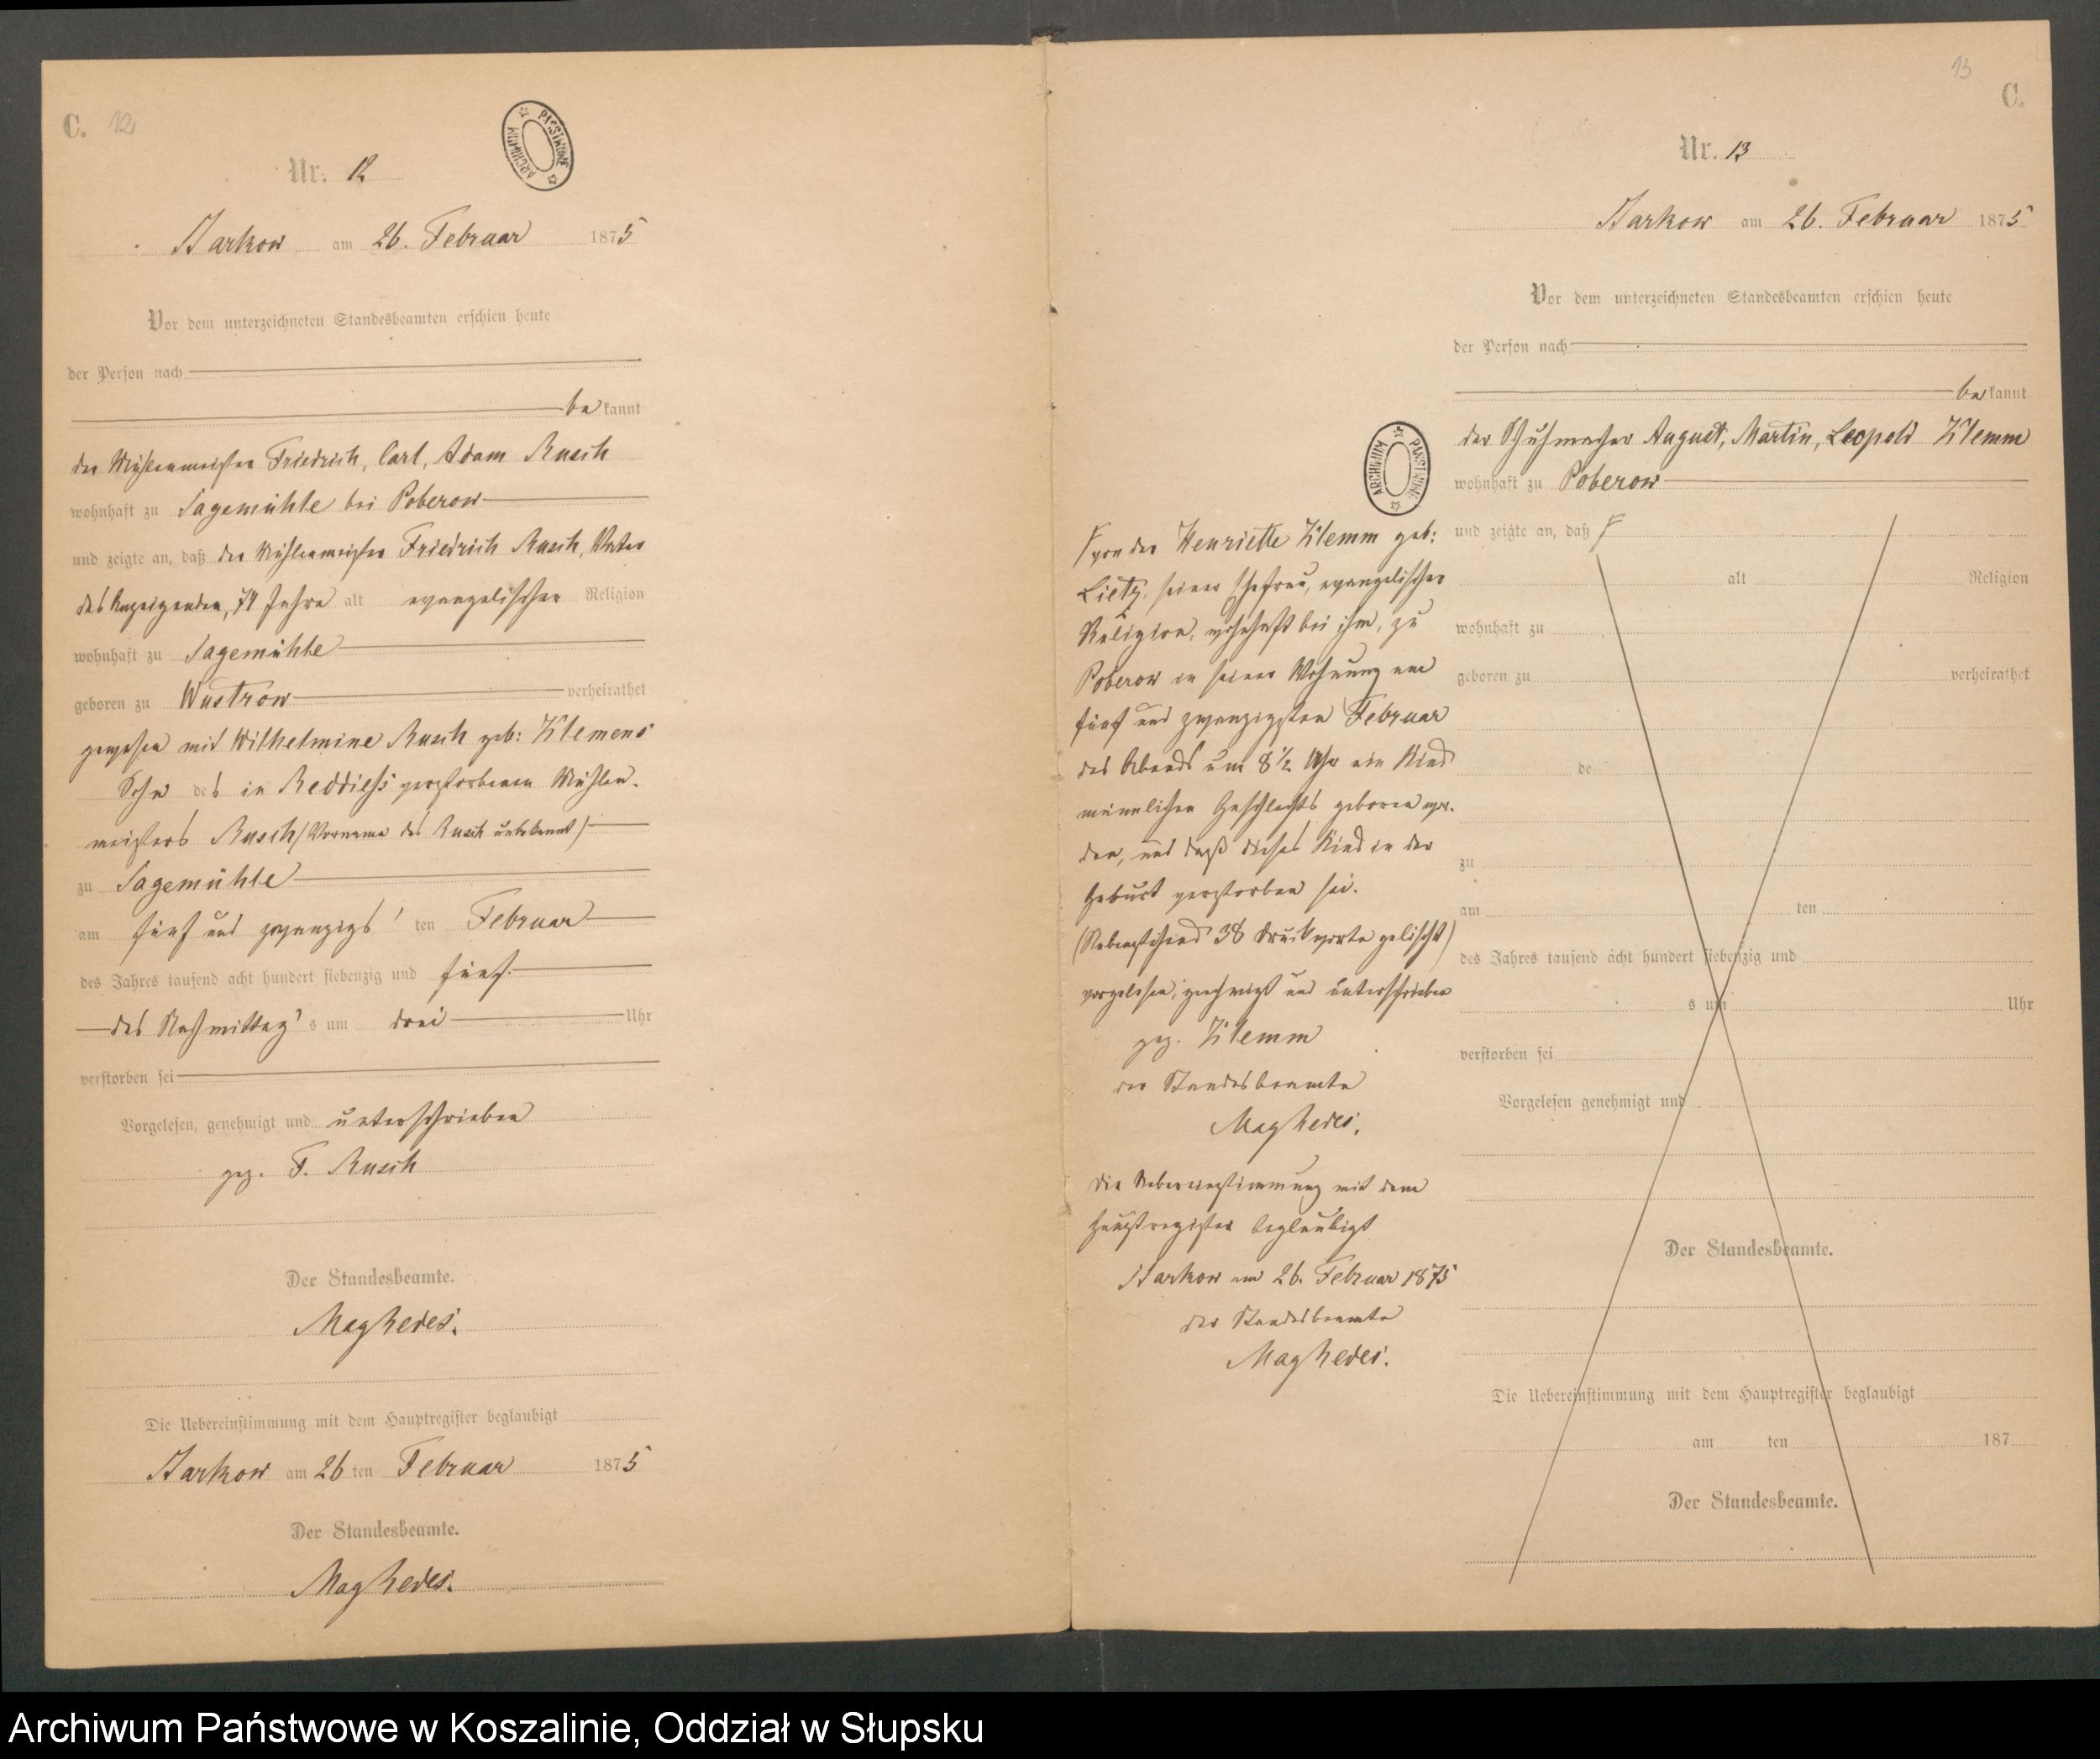 C. 12
Nr. 12
Starkow am 26. Februar 1875
Vor dem unterzeichneten Standesbeamten erschien heute
der Person nach
bekannt
der Mühlenmeister Friedrich, Carl, Adam Rusch
wohnhaft zu Sagemühle bei Poberow
und zeigte an, daß der Mühlenmeister Friedrich Rusch, Vater
des Anzeigenden, 74 Jahre alt evangelischer Religion
wohnhaft zu Sagemühle
geboren zu Wustrow verheirathet
gewesen mit Wilhelmine Rusch geb: Klemens
Sohn des in Reddiess verstorbenen Mühlen-
meisters Rusch (Vorname des Rusch unbekannt)
zu Sagemühle
am fünf und zwanzigs'ten Februar
des Jahres tausend acht hundert siebenzig und fünf
des Nachmittag's um drei Uhr
verstorben sei
Vorgelesen, genehmigt und unterschrieben
gez. F. Rusch
Der Standesbeamte.
Die Uebereinstimmung mit dem Hauptregister beglaubigt
Starkow am 26 ten Februar 1875
Der Standesbeamte.
ARCHIWUM PAŃSTWOWE
13
C.
Nr. 13
Starkow am 26. Februar 1875
Vor dem unterzeichneten Standesbeamten erschien heute
der Person nach
bekannt
der Schuhmacher August, Martin, Leopold Klemm
wohnhaft zu Poberow
und zeigte an, daß
alt Religion
wohnhaft zu
geboren zu verheirathet
de
zu
am ten
des Jahres tausend acht hundert siebenzig und
s um Uhr
verstorben sei
Vorgelesen genehmigt und
Der Standesbeamte.
Die Uebereinstimmung mit dem Hauptregister beglaubigt
am ten 187
Der Standesbeamte.
ARCHIWUM PAŃSTWOWE
von der Henriette Klemm geb:
Lietz, seiner Ehefrau, evangelischer
Religion, wohnhaft bei ihm, zu
Poberow in seiner Wohnung am
fünf und zwanzigsten Februar
des Abends um 8 1/2 Uhr ein Kind
männlichen Geschlechts geboren wor-
den, und daß dieses Kind in der
Geburt verstorben sei.
(Nebenstehend 38 Druckworte gelöscht)
vorgelesen, genehmigt und unterschrieben
gez. Klemm
der Standesbeamte
die Uebereinstimmung mit dem
Hauptregister beglaubigt
Starkow am 26. Februar 1875
der Standesbeamte
Archiwum Państwowe w Koszalinie, Oddział w Słupsku